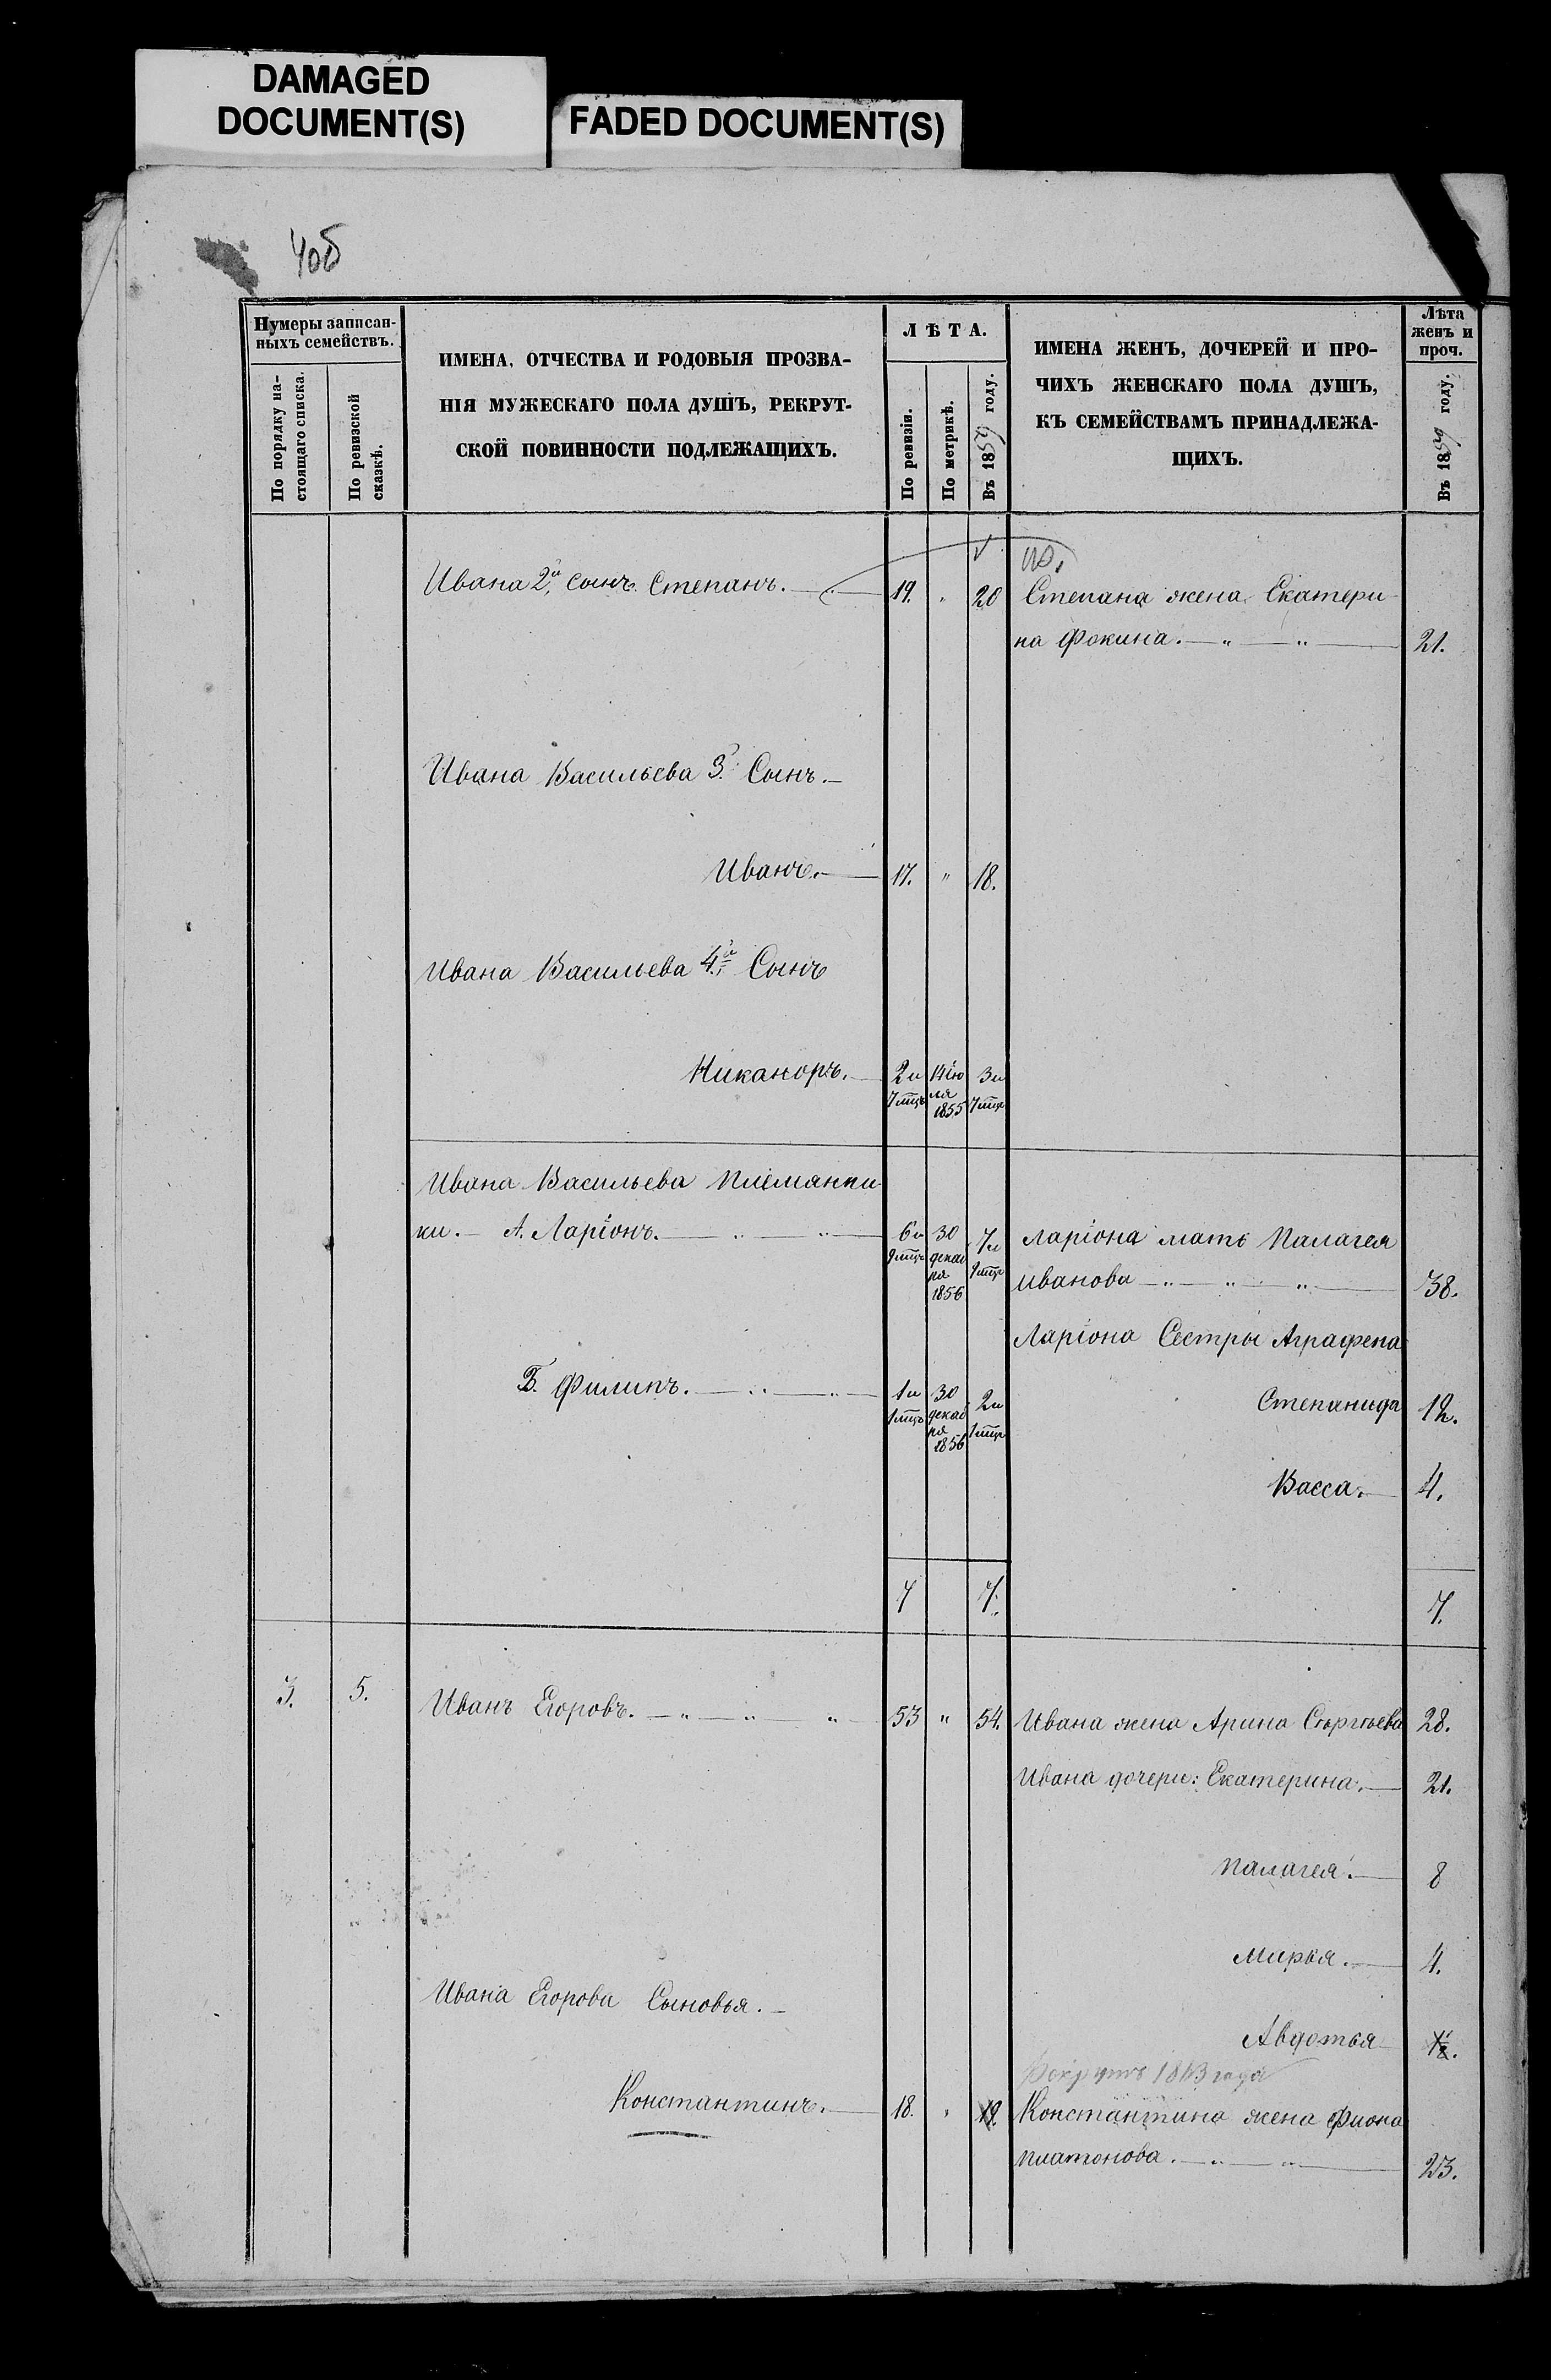 DAMAGED
DOCUMENT(S)
FADED DOCUMENT(S)
Нумеры записан-
ныхъ семействъ.
По порядку на-
стоящаго списка.
По ревизской
сказкѣ.
ИМЕНА, ОТЧЕСТВА И РОДОВЫЯ ПРОЗВА-
НІЯ МУЖЕСКАГО ПОЛА ДУШЪ, РЕКРУТ-
СКОЙ ПОВИННОСТИ ПОДЛЕЖАЩИХЪ.
ЛѢТА.
По ревизіи.
По метрикѣ.
Въ 1859 году.
ИМЕНА ЖЕНЪ, ДОЧЕРЕЙ И ПРО-
ЧИХЪ ЖЕНСКАГО ПОЛА ДУШЪ,
КЪ СЕМЕЙСТВАМЪ ПРИНАДЛЕЖА-
ЩИХЪ.
Лѣта
женъ и
проч.
Въ 1859 году.
Ивана 2й сынъ Степанъ. 19. " 20 Степана жена Екатери
на Фокина. — " — " — 21.
Ивана Васильева 3й Сынъ. —
Иванъ. — 17. " 18.
Ивана Васильева 4й Сынъ
Никаноръ. — 2 и 7 мцъ 14 Ію
ля
1855 3 и 7 мцъ
Ивана Васильева племянни
ки. — А. Ларіонъ. — " — " — 6 и 9 мцъ 30
декаб
ря
1856 7 и 9 мцъ Ларіона мать Палагея
Иванова — " — " — " — 38.
Ларіона Сестры Аграфена
Б. Филипъ. — " — " — 1 и 1 мцъ 30
декаб
ря
1856 2 и 1 мцъ Степанида 12.
Васса. — 4.
7 7. 7.
3. 5. Иванъ Егоровъ. — " — " — " 53 " 54. Ивана жена Арина Сергѣева 28.
Ивана дочери: Екатерина. — 21.
Палагея. — 8
Марья. — 4.
Ивана Егорова Сыновья. —
Авдотья
1863 года
Константинъ. — 18. " 19. Константина жена Фиона
Платонова. — " — " — 23.